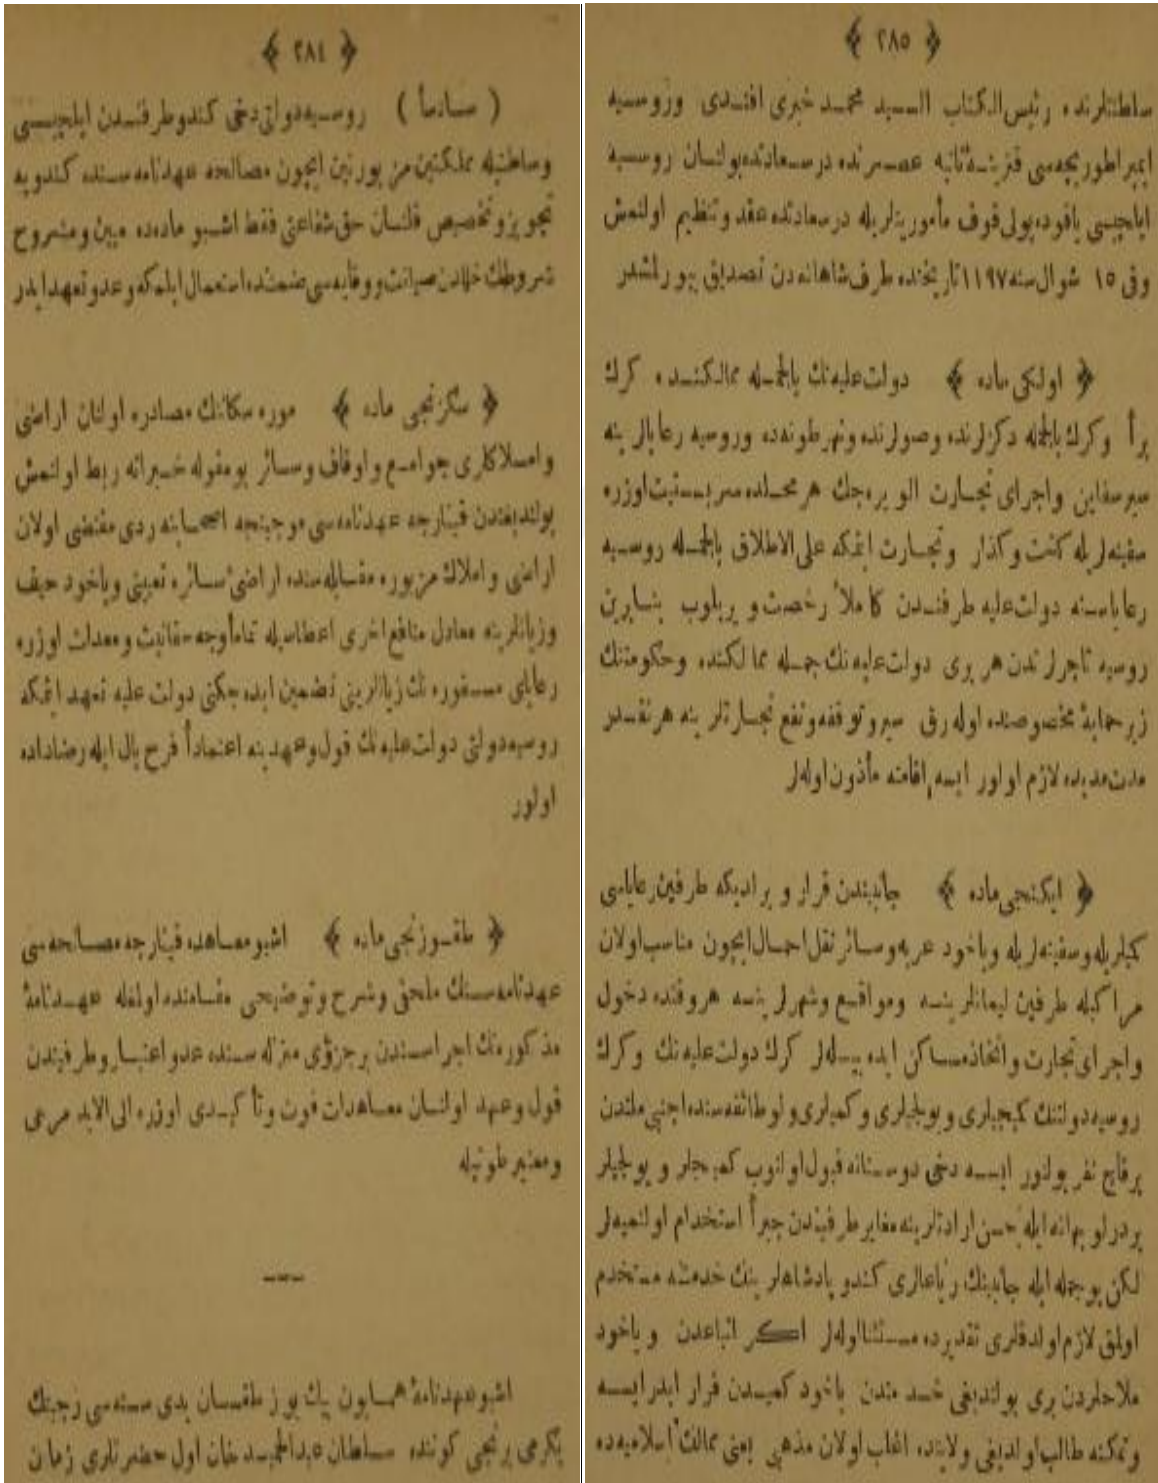 ﴿ ٢٨٤ ﴾
( سادساً ) روسیه دولتی دخی کندو طرفندن ایلچیسی
وساطتیله مملکتین مزبورتین ایچون مصالحه عهدنامه سنده کندویه
تجویز و تخصیص قلنان حق شفاعتی فقط اشبو ماده ده مبین و مشروح
شروطك خللدن صیانت و وقایه سی ضمننده استعمال ایلمکه وعد و تعهد ایدر
﴿ سکزنجی ماده ﴾ موره سکاننك مصادره اولنان اراضی
واملاکلری جوامع و اوقاف و سائر بو مقوله خیراته ربط اولنمش
بولندیغندن قینارجه عهدنامه سی موجبنجه اصحابنه ردی مقتضی اولان
اراضی و املاك مزبوره مقابله سنده اراضئ سائره تعیینی ویاخود حیف
وزیانلرینه معادل منافع اخری اعطاسیله تماماً وجه حقانیت و معدلت اوزره
رعایای مسفوره نك زیانلرینی تضمین ایده جکنی دولت علیه تعهد ایتمکه
روسیه دولتی دولت علیه نك قول و عهدینه اعتماداً فرح بال ایله رضاداده
اولور
﴿ طقوزنجی ماده ﴾ اشبو معاهده قینارجه مصالحه سی
عهدنامه سنك ملحق و شرح و توضیحی مقامنده اولمغله عهدنامهٔ
مذکوره نك اجزاسندن بر جزؤی منزله سنده عد و اعتبار و طرفیندن
قول و عهد اولنان معاهدات قوت و تأکیدی اوزره الی الابد مرعی
ومعتبر طوتیله
اشبو عهدنامهٔ همایون بیك یوز طقسان یدی سنه سی رجبنك
یکرمی برنجی کوننده سلطان عبدالحمید خان اول حضرتلری زمان
﴿ ٢٨٥ ﴾
سلطنتلرنده رئیس الکتاب السید محمد خیری افندی و روسیه
ایمپراطوریچه سی قترینهٔ ثانیه عصرنده درسعادتده بولنان روسیه
ایلچیسی یاقوده بولی قوف مأموریتلریله درسعادتده عقد و تنظیم اولنمش
وفی ١٥ شوال سنه ١١٩٧ تاریخنده طرف شاهانه دن تصدیق بیورلمشدر
﴿ اولکی ماده ﴾ دولت علیه نك بالجمله ممالکنده كرك
براً و كرك بالجمله دکزلرنده و صولرنده و نهر طونه ده و روسیه رعایالرینه
سیر سفاین و اجرای تجارت الویره جك هر محلده سربستیت اوزره
سفینه لریله کشت و کذار و تجارت ایتمکه علی الاطلاق بالجمله روسیه
رعایاسنه دولت علیه طرفندن کاملاً رخصت ویریلوب بناءً برین
روسیه تاجرلرندن هر بری دولت علیه نك جمله ممالکنده و حکومتنك
زیر حمایهٔ مخصوصنده اوله رق سیر و توقفه و نفع تجارتلرینه هر نقدر
مدت مدیده لازم اولور ایسه اقامته مأذون اوله لر
﴿ ایکنجی ماده ﴾ جانبیندن قرار ویرلدیکه طرفین رعایاسی
کمیلریله و سفینه لریله ویاخود عربه و سائر نقل احمال ایچون مناسب اولان
مراکبله طرفین لیمانلرینه و مواقع و شهرلرینه هر وقتده دخول
واجرای تجارت و اتخاذ مساکن ایده بیله لر كرك دولت علیه نك و كرك
روسیه دولتنك کمیجیلری و یولجیلری و کمیلری ولو طائفه سنده اجنبی ملتدن
برقاچ نفر بولنور ایسه دخی دوستانه قبول اولنوب کمیجلر و یولجیلر
بر درلو بهانه ایله حسن ارادتلرینه مغایر طرفیندن جبراً استخدام اولنمیه لر
لکن بو جمله ایله جانبینك رعایالری کندو پادشاهلرینك خدمتنه مستخدم
اولمق لازم اولدقلری تقدیرده مستثنا اوله لر اکر اتباعدن ویاخود
ملاحلردن بری بولندیغی خدمتدن یاخود کمیدن فرار ایدر ایسه
وتمکنه طالب اولدیغی ولایتده اغلب اولان مذهبی یعنی ممالك اسلامیه ده